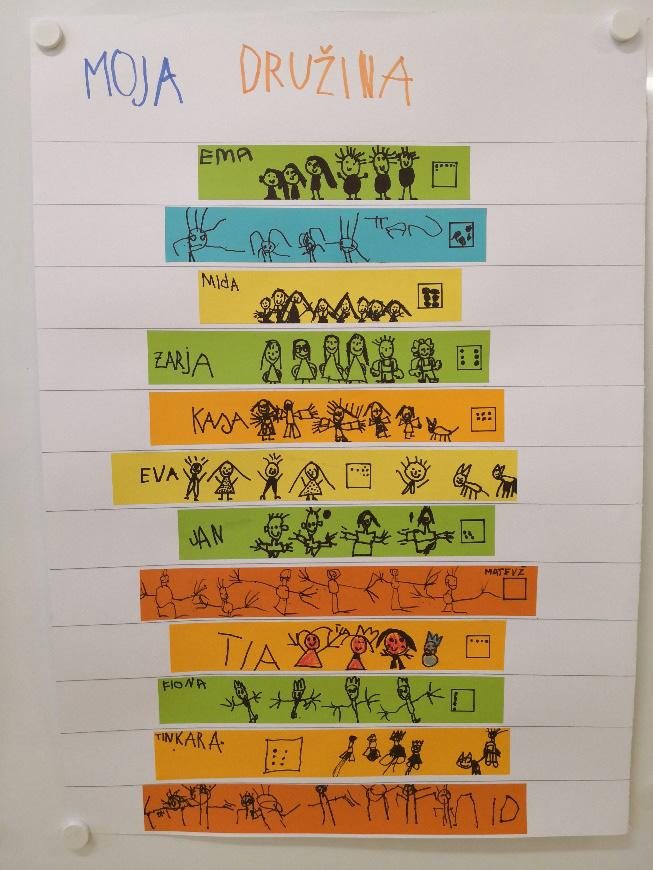 MOJA DRUŽINA
EMA
MIdA
ZARJA
KAJA
EVA
JAN
MATEVŽ
TIA
FIONA
TINKARA